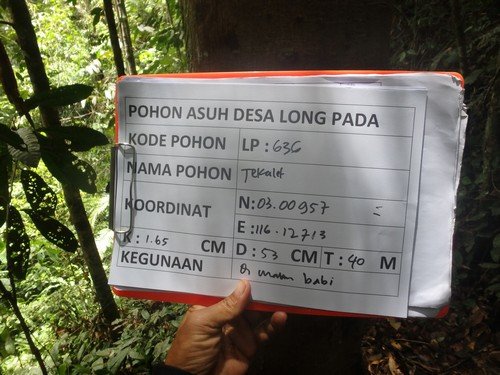 POHON ASUH DESA LONG PADA
KODE POHON LP : 636
NAMA POHON Tekalet
KOORDINAT N : 03.00957
E : 116.12713
K : 1.65 CM D : 53 CM T : 40 M
KEGUNAAN di makan babi